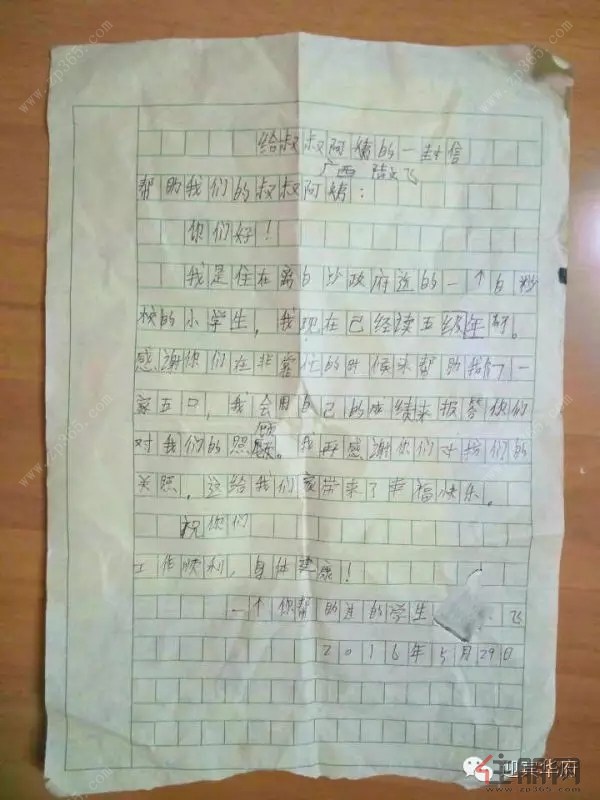 给叔叔阿姨的一封信
广西 陆文飞
帮助我们的叔叔阿姨：
你们好！
我是住在离白沙政府近的一个白沙
校的小学生，我现在已经读五级年了。
感谢你们在非常忙的时候来帮助我们一
家五口，我会用自己的成绩来报答你们
对我们的照顾。我再感谢你们对我们的
关照，这给我们家带来了幸福快乐。
祝你们
工作顺利，身体健康！
一个你帮助过的学生 飞
2016年5月29日
迎建华府
www.zp365.com